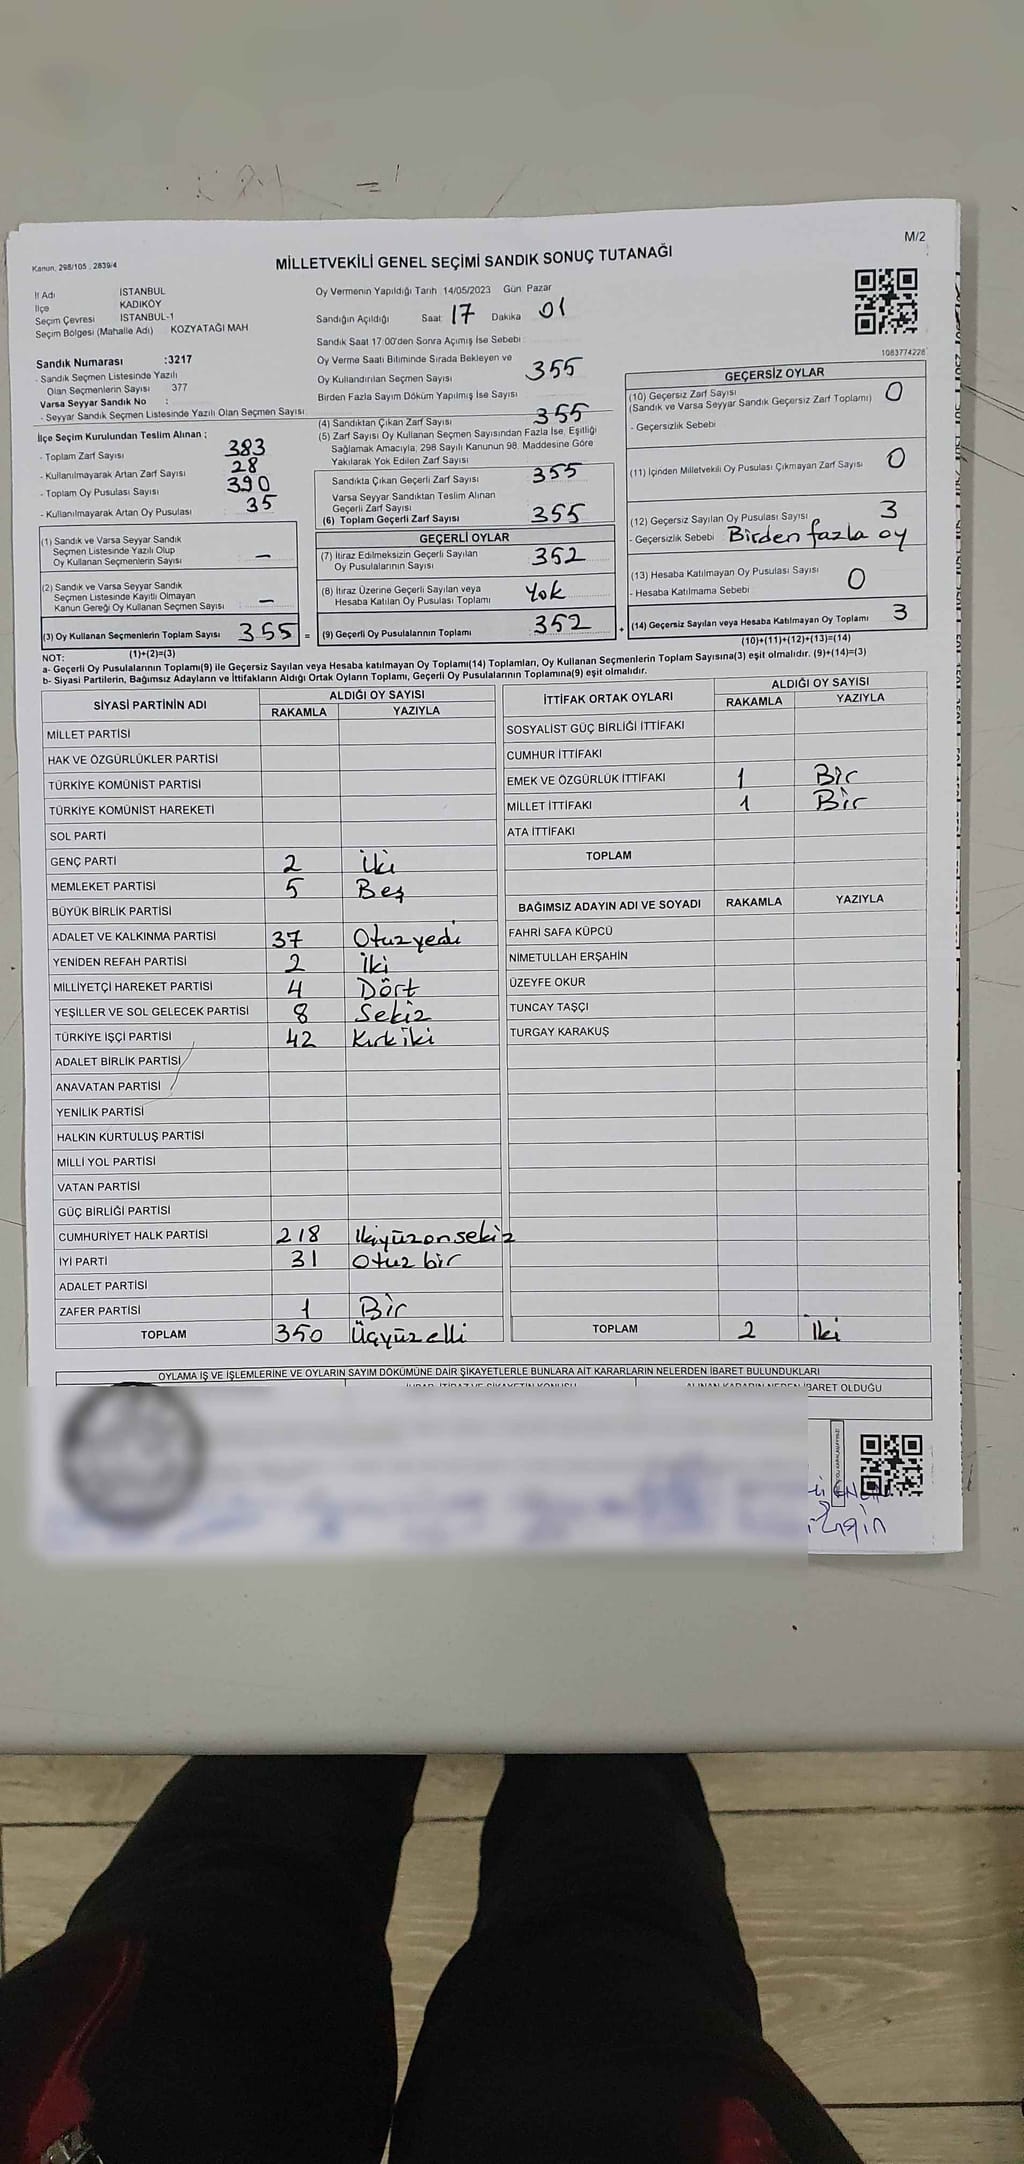 M/2
Kanun, 298/105 , 2839/4
MİLLETVEKİLİ GENEL SEÇİMİ SANDIK SONUÇ TUTANAĞI
İl Adı İSTANBUL
İlçe KADIKÖY
Seçim Çevresi İSTANBUL-1
Seçim Bölgesi (Mahalle Adı) KOZYATAĞI MAH
Sandık Numarası :3217
- Sandık Seçmen Listesinde Yazılı
Olan Seçmenlerin Sayısı 377
Varsa Seyyar Sandık No :
- Seyyar Sandık Seçmen Listesinde Yazılı Olan Seçmen Sayısı
İlçe Seçim Kurulundan Teslim Alınan ;
- Toplam Zarf Sayısı 383
- Kullanılmayarak Artan Zarf Sayısı 28
- Toplam Oy Pusulası Sayısı 390
- Kullanılmayarak Artan Oy Pusulası 35
(1) Sandık ve Varsa Seyyar Sandık
Seçmen Listesinde Yazılı Olup
Oy Kullanan Seçmenlerin Sayısı –
(2) Sandık ve Varsa Seyyar Sandık
Seçmen Listesinde Kayıtlı Olmayan
Kanun Gereği Oy Kullanan Seçmen Sayısı –
(3) Oy Kullanan Seçmenlerin Toplam Sayısı 355 =
(1)+(2)=(3)
Oy Vermenin Yapıldığı Tarih 14/05/2023 Gün Pazar
Sandığın Açıldığı Saat 17 Dakika 01
Sandık Saat 17 00'den Sonra Açımış İse Sebebi
Oy Verme Saati Bitiminde Sırada Bekleyen ve
Oy Kullandırılan Seçmen Sayısı 355
Birden Fazla Sayım Döküm Yapılmış İse Sayısı
(4) Sandıktan Çıkan Zarf Sayısı 355
(5) Zarf Sayısı Oy Kullanan Seçmen Sayısından Fazla İse, Eşitliği
Sağlamak Amacıyla; 298 Sayılı Kanunun 98. Maddesine Göre
Yakılarak Yok Edilen Zarf Sayısı
Sandıkta Çıkan Geçerli Zarf Sayısı 355
Varsa Seyyar Sandıktan Teslim Alınan
Geçerli Zarf Sayısı
(6) Toplam Geçerli Zarf Sayısı 355
GEÇERLİ OYLAR
(7) İtiraz Edilmeksizin Geçerli Sayılan
Oy Pusulalarının Sayısı 352
(8) İtiraz Üzerine Geçerli Sayılan veya
Hesaba Katılan Oy Pusulası Toplamı Yok
(9) Geçerli Oy Pusulalarının Toplamı 352 +
1083774226
GEÇERSİZ OYLAR
(10) Geçersiz Zarf Sayısı
(Sandık ve Varsa Seyyar Sandık Geçersiz Zarf Toplamı) 0
- Geçersizlik Sebebi
(11) İçinden Milletvekili Oy Pusulası Çıkmayan Zarf Sayısı 0
(12) Geçersiz Sayılan Oy Pusulası Sayısı 3
- Geçersizlik Sebebi : Birden fazla oy
(13) Hesaba Katılmayan Oy Pusulası Sayısı 0
- Hesaba Katılmama Sebebi
(14) Geçersiz Sayılan veya Hesaba Katılmayan Oy Toplamı 3
(10)+(11)+(12)+(13)=(14)
NOT:
a- Geçerli Oy Pusulalarının Toplamı(9) ile Geçersiz Sayılan veya Hesaba katılmayan Oy Toplamı(14) Toplamları, Oy Kullanan Seçmenlerin Toplam Sayısına(3) eşit olmalıdır. (9)+(14)=(3)
b- Siyasi Partilerin, Bağımsız Adayların ve İttifakların Aldığı Ortak Oyların Toplamı, Geçerli Oy Pusulalarının Toplamına(9) eşit olmalıdır.
SİYASİ PARTİNİN ADI ALDIĞI OY SAYISI
RAKAMLA YAZIYLA
MİLLET PARTİSİ
HAK VE ÖZGÜRLÜKLER PARTİSİ
TÜRKİYE KOMÜNİST PARTİSİ
TÜRKİYE KOMÜNİST HAREKETİ
SOL PARTİ
GENÇ PARTİ 2 İki
MEMLEKET PARTİSİ 5 Beş
BÜYÜK BİRLİK PARTİSİ
ADALET VE KALKINMA PARTİSİ 37 Otuzyedi
YENİDEN REFAH PARTİSİ 2 İki
MİLLİYETÇİ HAREKET PARTİSİ 4 Dört
YEŞİLLER VE SOL GELECEK PARTİSİ 8 Sekiz
TÜRKİYE İŞÇİ PARTİSİ 42 Kırkiki
ADALET BİRLİK PARTİSİ
ANAVATAN PARTİSİ
YENİLİK PARTİSİ
HALKIN KURTULUŞ PARTİSİ
MİLLİ YOL PARTİSİ
VATAN PARTİSİ
GÜÇ BİRLİĞİ PARTİSİ
CUMHURİYET HALK PARTİSİ 218 İkiyüzonsekiz
İYİ PARTİ 31 Otuz bir
ADALET PARTİSİ
ZAFER PARTİSİ 1 Bir
TOPLAM 350 Üçyüzelli
İTTİFAK ORTAK OYLARI ALDIĞI OY SAYISI
RAKAMLA YAZIYLA
SOSYALİST GÜÇ BİRLİĞİ İTTİFAKI
CUMHUR İTTİFAKI
EMEK VE ÖZGÜRLÜK İTTİFAKI 1 Bir
MİLLET İTTİFAKI 1 Bir
ATA İTTİFAKI
TOPLAM
BAĞIMSIZ ADAYIN ADI VE SOYADI RAKAMLA YAZIYLA
FAHRİ SAFA KÜPCÜ
NİMETULLAH ERŞAHİN
ÜZEYFE OKUR
TUNCAY TAŞÇI
TURGAY KARAKUŞ
TOPLAM 2 İki
OYLAMA İŞ VE İŞLEMLERİNE VE OYLARIN SAYIM DÖKÜMÜNE DAİR ŞİKAYETLERLE BUNLARA AİT KARARLARIN NELERDEN İBARET BULUNDUKLARI
İBARET OLDUĞU